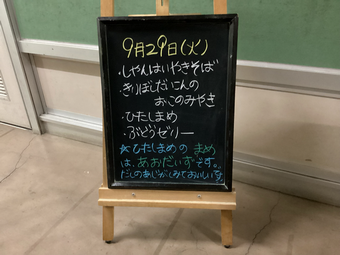 9月29日(火)
・しゃんはいやきそば
きりぼしだいこんの
おこのみやき
・ひたしまめ
・ぶどうゼリー
☆ひたしまめの まめ
は、あおだいずです。
だしのあじがしみておいしいです